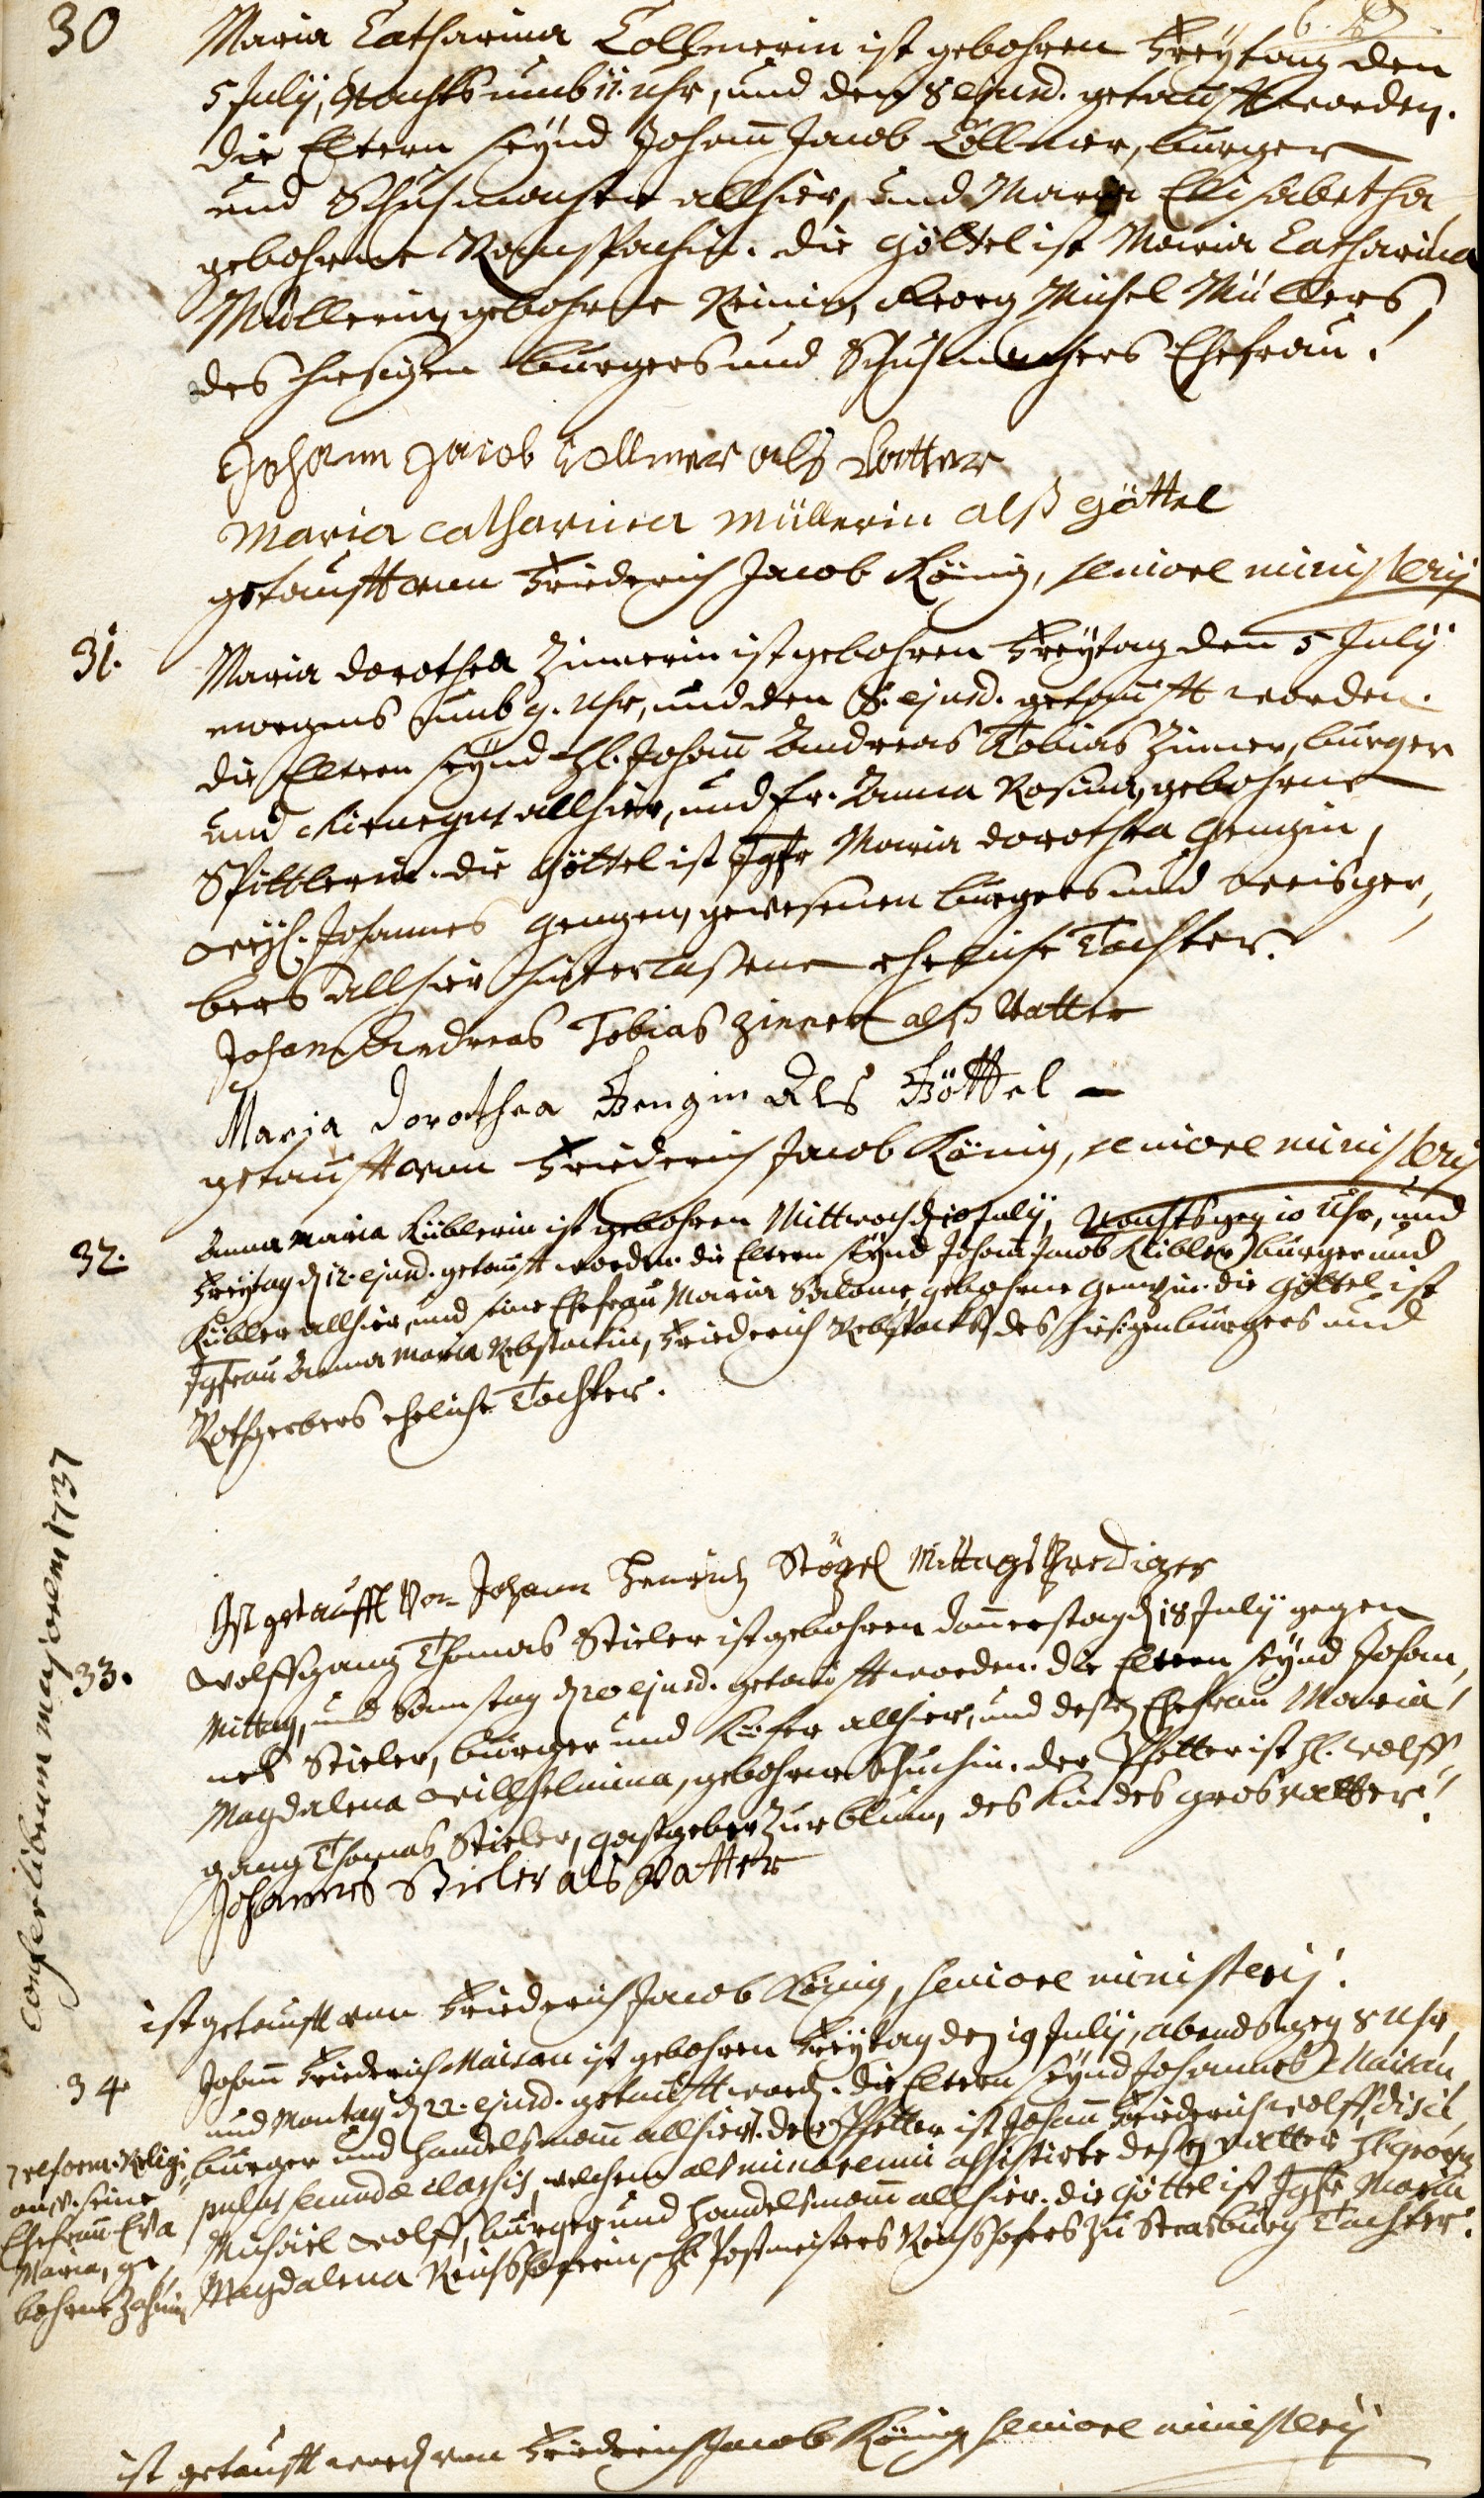 30
Maria Catharina Collmerin ist gebohren Freytag den
5 July, Nachts umb 11. uhr, und den 8 ejusd. getaufft worden.
die Eltern seynd Johann Jacob Collmer, burger
und Schuhmacher allhier, und Maria Elisabetha
gebohrne Ramspachin. die Göttel ist Maria Catharina
Müllerin, gebohrne Reinin, Georg Michel Müllers,
des hiesigen burgers und Schuhmachers Ehefrau.
Johann Jacob Collmer als Vatter
Maria Catharina Müllerin alß göttel
getaufft von Friederich Jacob König, seniore ministerij
31.
Maria Dorothea Zinnerin ist gebohren Freytag den 5 July
morgens umb 9. Uhr, und den 8. ejusd. getaufft worden.
die Eltern seynd H. Johann Andreas Tobias Zinner, burger
und Chirurgus allhier, und Fr. Anna Rosina, gebohrne
Spittlerin. die Göttel ist Jgfr Maria Dorothea Gengin,
weyl. Johannes Gengen, gewesenen burgers und Weisger,
bers allhier hinterlaßene eheliche Tochter.
Johann Andreas Tobias Zinner alß Vatter
Maria Dorothea Gengin Als Göttel
getaufft von Friederich Jacob König, seniore ministerij
32.
Anna Maria Küblerin ist gebohren Mittwoch d 10 July, Nachts geg 10 Uhr, und
Freytag d 12. ejusd. getaufft worden. die Eltern seynd Johann Jacob Kübler, burger und
Kübler allhier, und seine Ehefrau Maria Salome, gebohrne Gengin. die Göttel ist
Jgfrau Anna Maria Rebstockin, Friederich Rebstocks, des hiesigen burgers und
Rothgerbers eheliche Tochter.
Ist getaufft Von Johann Henrich Stögel Mittags Prediger
33.
Wolffgang Thomas Stieler ist gebohren Donnerstag d 18 July gegen
Mittag, und Samstag d 20 ejusd. getaufft worden. die Eltern seynd Johan,
nes Stieler, burger und Kiefer allhier, und deßen Ehefrau Maria
Magdalena Willhelmina, gebohrne Schuchin. der Pfetter ist H. Wolff,
gang Thomas Stieler, gastgeber zur blum, des Kindes grosvatter.
Johannes Stieler als Vatter
ist getaufft von Friederich Jacob König, seniore ministerij.
Confer librum majorem 1737
34
Johann Friederich Maisan ist gebohren Freytag den 19 July, abends geg 8 Uhr,
und Montag d 22. ejusd. getaufft word. die Eltern seynd Johannes Maisan,
burger und handelsmann allhier. der Pfetter ist Johann Friederich Wolff, disci,
pulus secundæ classis, welchem als minorenni assistirte deßen Vatter H. Georg
Michael Wolff, burger und handelsmann allhier. die Göttel ist Jgfr Maria
Magdalena Reichshoferin, H. Postmeisters Reichshofers zu Strasburg Tochter.
reform. Religi
on, v. seine
Ehefrau Eva
Maria, ge
bohrne Zahnin
ist getaufft word von Friederich Jacob König seniore ministerij